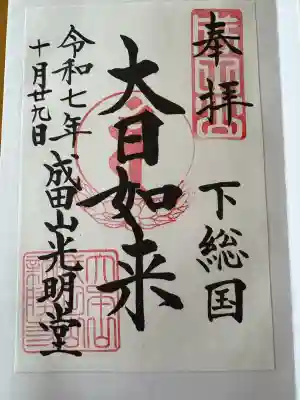 奉拝
下総国
大日如来
令和七年
十月廿九日
成田山光明堂